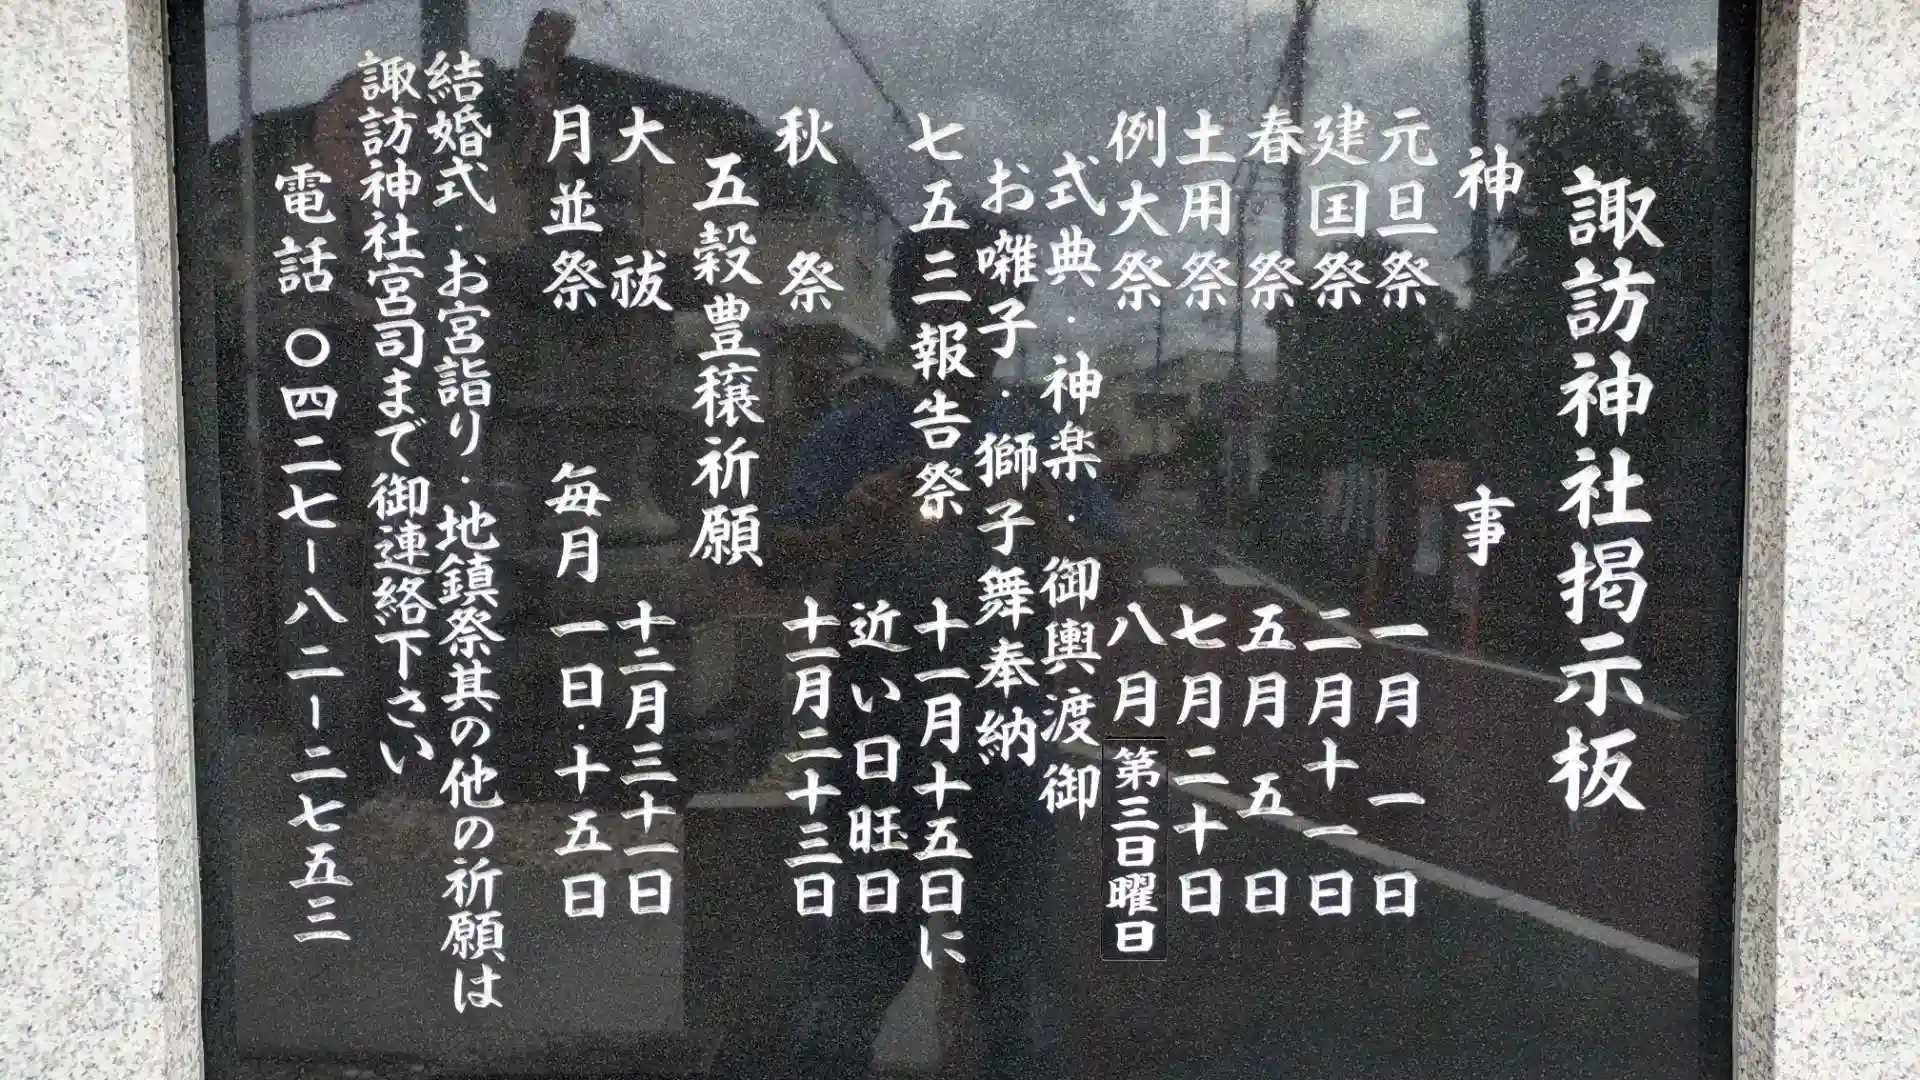 諏訪神社掲示板
神事
元旦祭 一月一日
建国祭 二月十一日
春祭 五月五日
土用祭 七月二十日
例大祭 八月第三日曜日
式典・神楽・御輿渡御
お囃子・獅子舞奉納
七五三報告祭 十一月十五日に
近い日旺日
秋祭 十一月二十三日
五穀豊穣祈願
大祓 十二月三十一日
月並祭 毎月一日・十五日
結婚式・お宮詣り・地鎮祭其の他の祈願は
諏訪神社宮司まで御連絡下さい
電話〇四二七-八二-二七五三